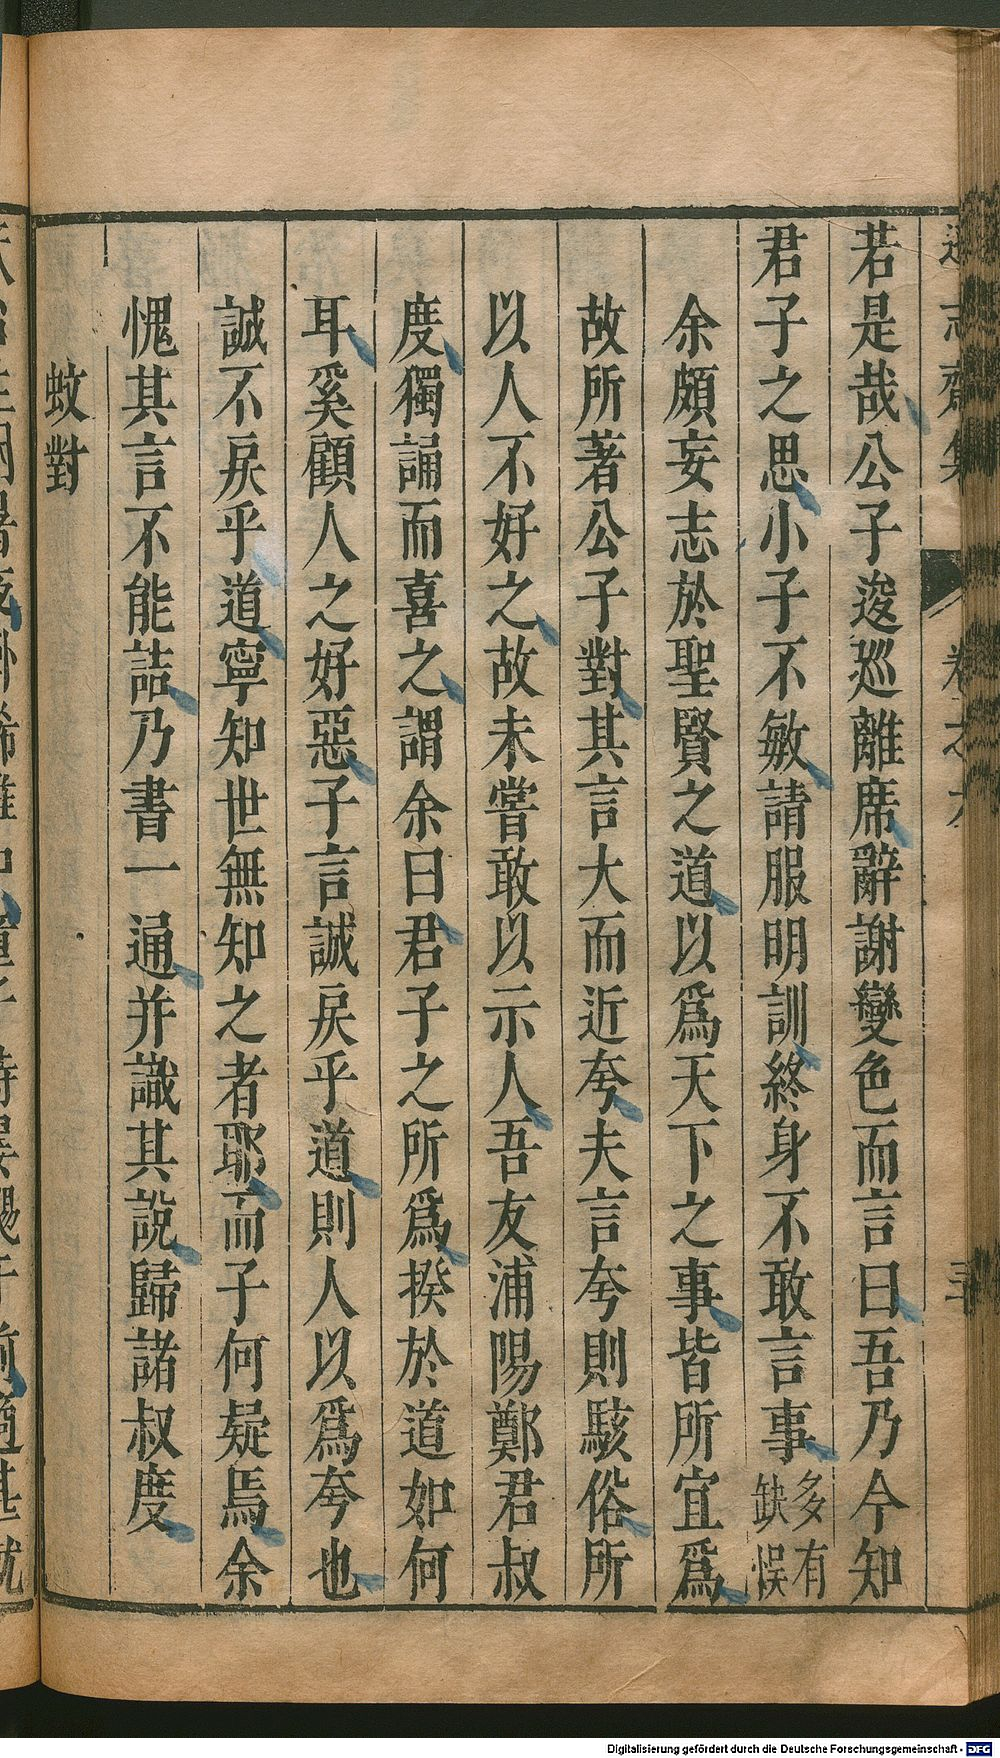 若是哉公子逡巡離席辭謝變色而言曰吾乃今知
君子之思小子不敏請服明訓終身不敢言事多有缺悞
余頗妄志於聖賢之道以爲天下之事皆所宜爲
故所著公子對其言大而近夸夫言夸則駭俗所
以人不好之故未嘗敢以示人吾友浦陽鄭君叔
度獨誦而喜之謂余曰君子之所爲揆於道如何
耳奚顧人之好惡子言誠戾乎道則人以爲夸也
誠不戾乎道寧知世無知之者耶而子何疑焉余
愧其言不能詰乃書一通并識其說歸諸叔度
蚊對
Digitalisierung gefördert durch die Deutsche Forschungsgemeinschaft - DFG